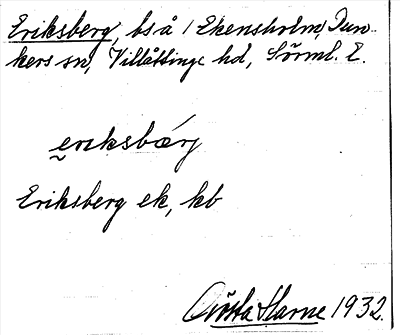 Eriksberg, bs å / Ekensholm, Dun-
kers sn, Villåttinge hd, Sörml. L.
eriksbærj
Eriksberg ek, kb
Gösta Harne 1932.